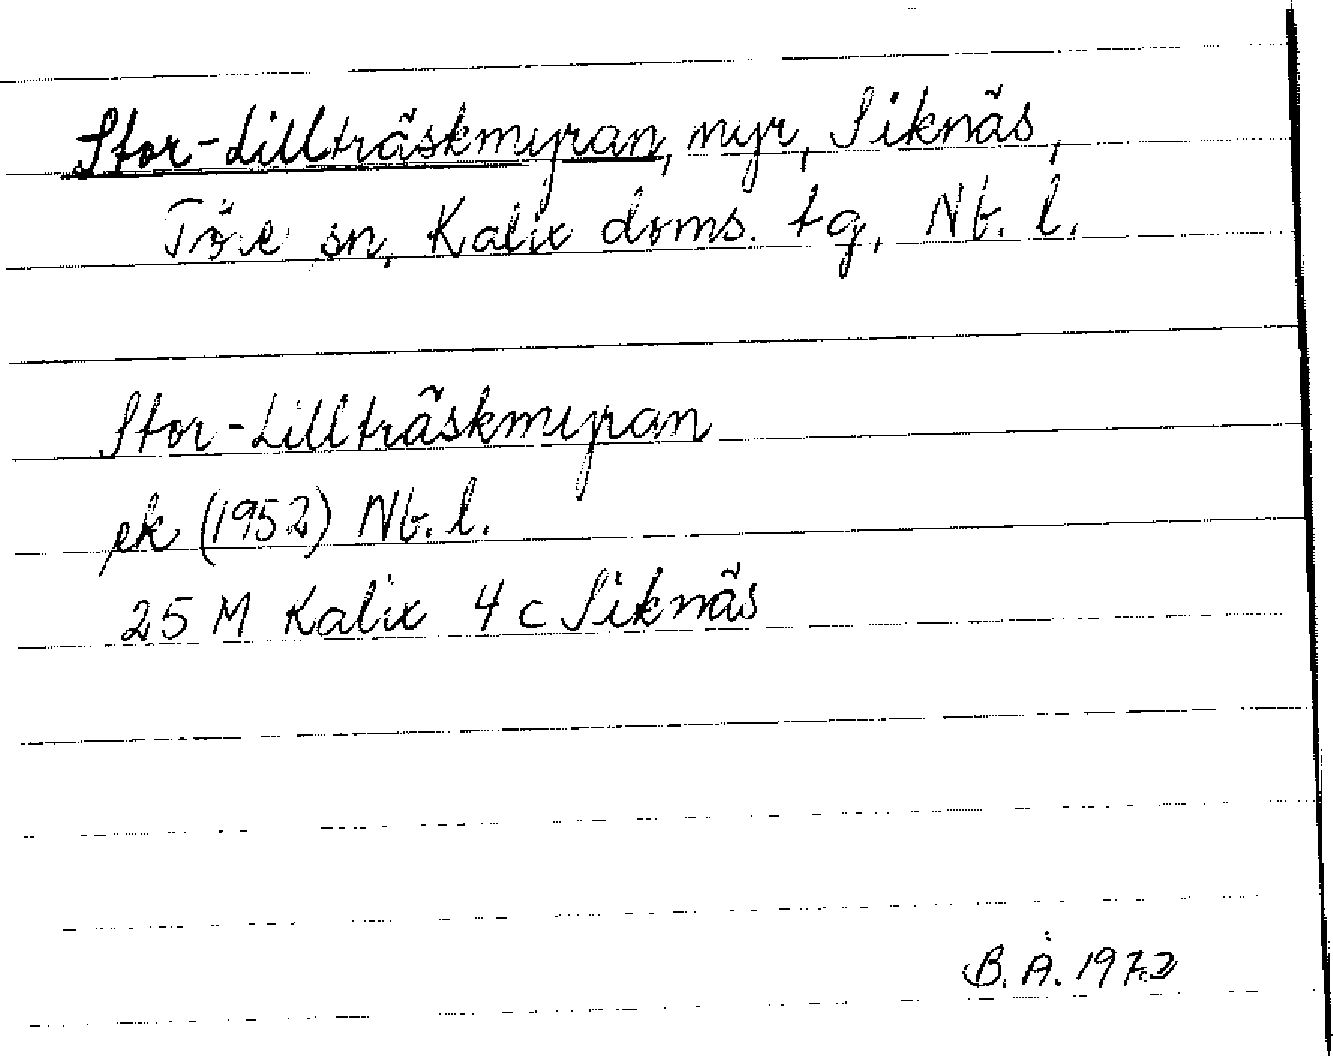 Stor-Lillträskmyran, myr, Siknäs,
Töre sn, Kalix doms. tg, Nb. l.
Stor-Lillträskmyran
ek (1952) Nb. l.
25 M Kalix 4 c Siknäs
B. Å. 1972